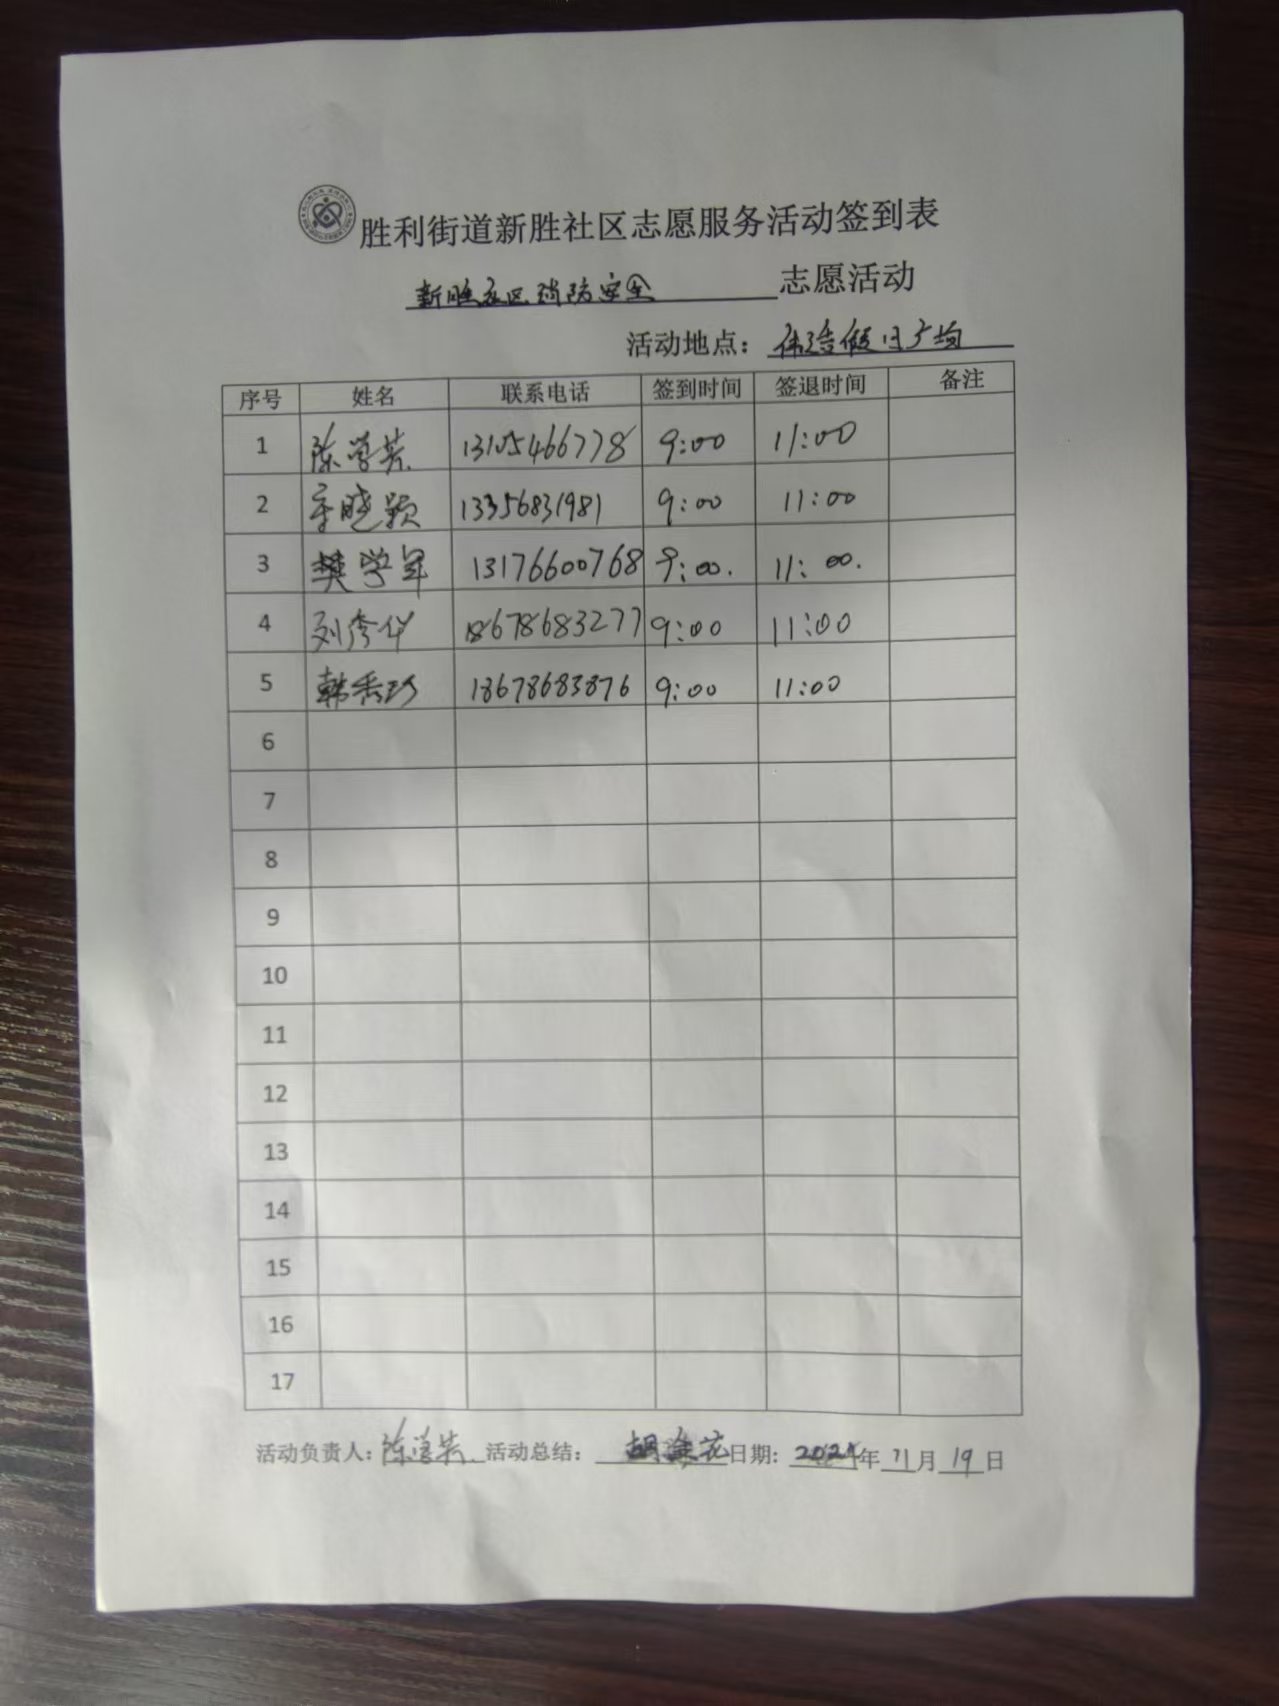 胜利街道新胜社区志愿服务活动签到表
新胜社区消防安全 志愿活动
活动地点: 伟浩假日广场
序号 姓名 联系电话 签到时间 签退时间 备注
1 陈学芳 13105466778 9:00 11:00
2 辛晓颖 13356831981 9:00 11:00
3 樊学军 13176600768 9:00. 11:00.
4 刘秀华 18678683277 9:00 11:00
5 韩秀珍 18678683876 9:00 11:00
6
7
8
9
10
11
12
13
14
15
16
17
活动负责人: 陈学芳 活动总结: 胡 花 日期: 年 11 月 19 日